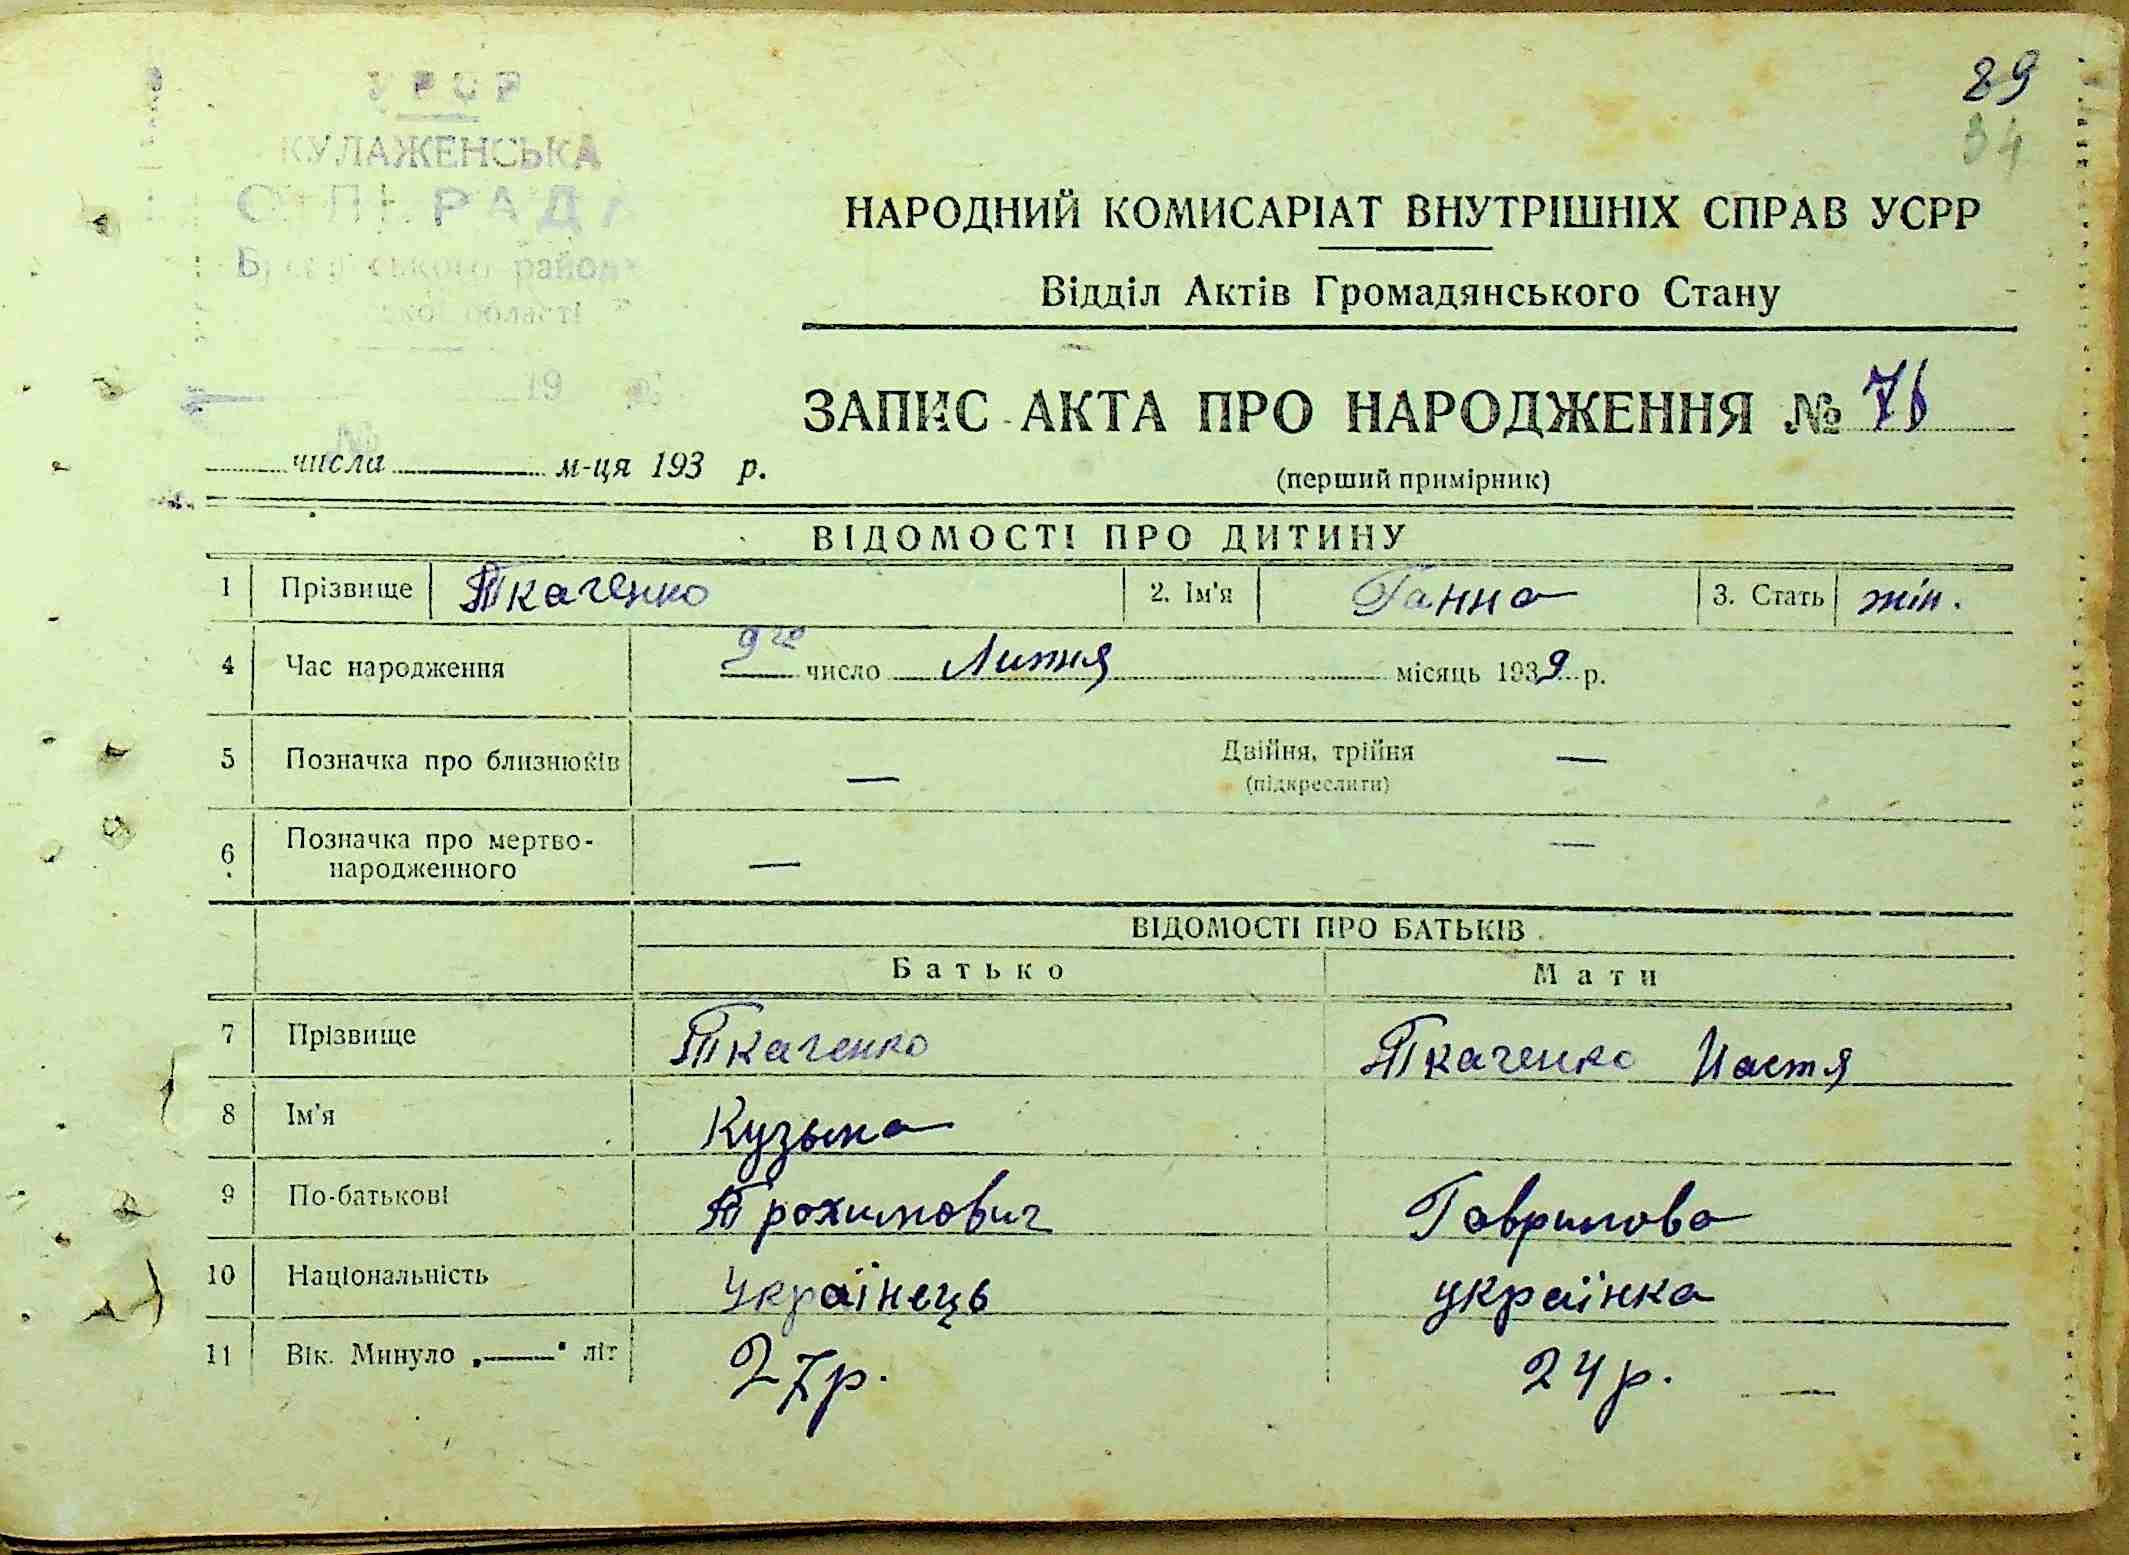 УРСР
КУЛАЖЕНСЬКА
РАДА
району
області
19
№
89
34
НАРОДНИЙ КОМИСАРІАТ ВНУТРІШНІХ СПРАВ УСРР
Відділ Актів Громадянського Стану
ЗАПИС АКТА ПРО НАРОДЖЕННЯ №
числа м-ця 193 р.
(перший примірник)
ВІДОМОСТІ ПРО ДИТИНУ
1 Прізвище Ткаченко 2. Ім'я Ганна 3. Стать жін.
4 Час народження 9го число Липня місяць 1939 р.
5 Позначка про близнюків — Двійня, трійня —
(підкреслити)
6 Позначка про мертво-
народженного — —
ВІДОМОСТІ ПРО БАТЬКІВ
Батько Мати
7 Прізвище Ткаченко Ткаченко Настя
8 Ім'я Кузьма
9 По-батькові Трохимович Гаврилова
10 Національність Українець українка
11 Вік. Минуло „——" літ 27р. 24р. —